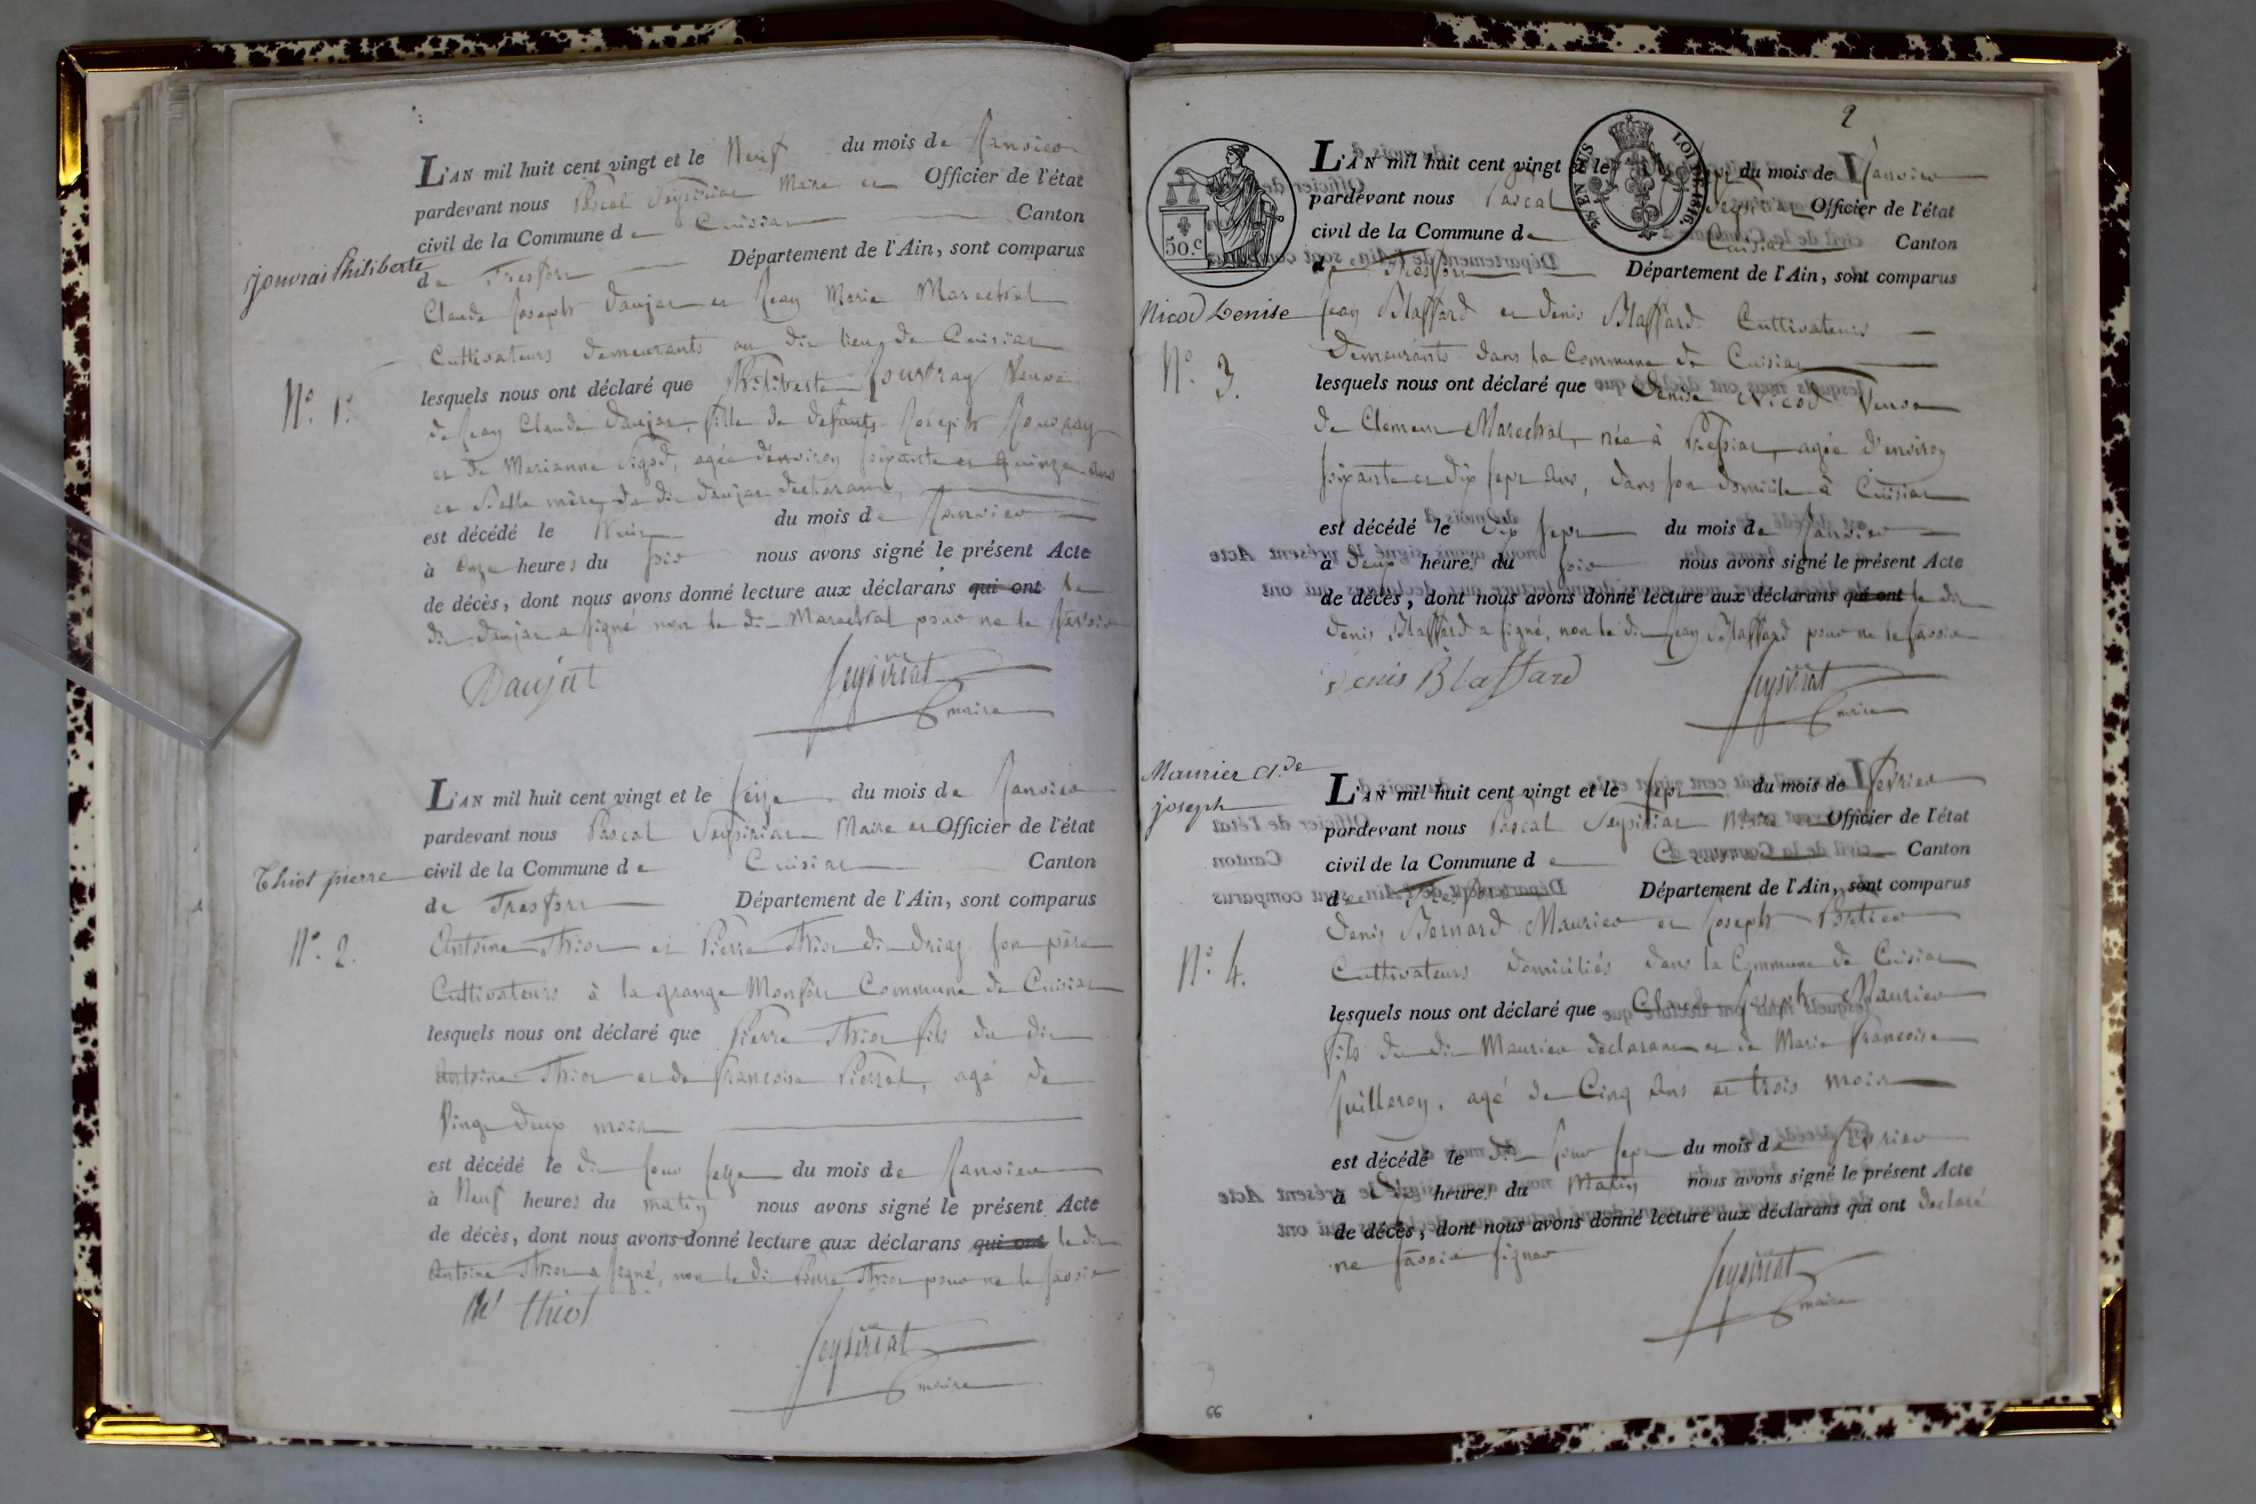 L'AN mil huit cent vingt et le Neuf du mois de Janvier
pardevant nous Pascal Seysiriat Maire et Officier de l'état
civil de la Commune de Cuisiat Canton
de Tresfort Département de l'Ain, sont comparus
Jouvrai Philiberte
Claude Joseph Daujat et Jean Marie Marechal
Cultivateurs demeurants au dit lieu de Cuisiat
lesquels nous ont déclaré que Philiberte Jouvray Veuve
N.º 1.
de Jean Claude Daujat, fille de defunts Joseph Jouvray
et de Marianne agée d'environ soixante et quinze ans
et belle mère du dit Daujat declarant,
est décédé le Huit du mois de Janvier
à Onze heures du soir nous avons signé le présent Acte
de décès, dont nous avons donné lecture aux déclarans qui ont le
dit Daujat a signé non le dit Marechal pour ne le savoir
Daujat
Seysiriat
maire
L'AN mil huit cent vingt et le seize du mois de Janvier
pardevant nous Pascal Seysiriat Maire et Officier de l'état
civil de la Commune de Cuisiat Canton
Thiot pierre
de Tresfort Département de l'Ain, sont comparus
N.º 2.
Antoine Thiot et Pierre Thiot dit son père
Cultivateurs à la grange Monfort Commune de Cuisiat
lesquels nous ont déclaré que Pierre Thiot fils du dit
Antoine Thiot et de françoise agé de
Vingt deux mois
est décédé le dit jour seize du mois de Janvier
à Neuf heures du matin nous avons signé le présent Acte
de décès, dont nous avons donné lecture aux déclarans qui ont le dit
Antoine Thiot a signé, non le dit Pierre Thiot pour ne le savoir
thiot
Seysiriat
maire
2
L'AN mil huit cent vingt et le du mois de Janvier
pardevant nous Pascal Seysiriat Officier de l'état
civil de la Commune de Cuisiat Canton
de Tresfort Département de l'Ain, sont comparus
50.c
LOI DE 1816.
Nicod Denise
Jean Blaffard et Denis Blaffard Cultivateurs
N.º 3.
Demeurants dans la Commune de Cuisiat
lesquels nous ont déclaré que Denise Nicod Veuve
de Clément Marechal, née à Pressiat, agée d'environ
soixante et dix sept ans, dans son domicile à Cuisiat
est décédé le dix sept du mois de Janvier
à deux heures du soir nous avons signé le présent Acte
de décès, dont nous avons donné lecture aux déclarans qui ont le dit
Denis Blaffard a signé, non le dit Jean Blaffard pour ne le savoir
Denis Blaffard
Seysiriat
maire
Maurier Cl.de
joseph
L'AN mil huit cent vingt et le sept du mois de fevrier
pardevant nous Pascal Seysiriat Maire et Officier de l'état
civil de la Commune de Canton
de Tresfort Département de l'Ain, sont comparus
N.º 4.
Denis Bernard Maurier et Joseph
Cultivateurs domiciliés dans la Commune de Cuisiat
lesquels nous ont déclaré que Claude Joseph Maurier
fils du dit Maurier declarant et de Marie francoise
Guilleroy, agé de Cinq ans et trois mois
est décédé le dit jour sept du mois de fevrier
à heures du Matin nous avons signé le présent Acte
de décès, dont nous avons donné lecture aux déclarans qui ont declaré
ne savoir signer
Seysiriat
maire
66